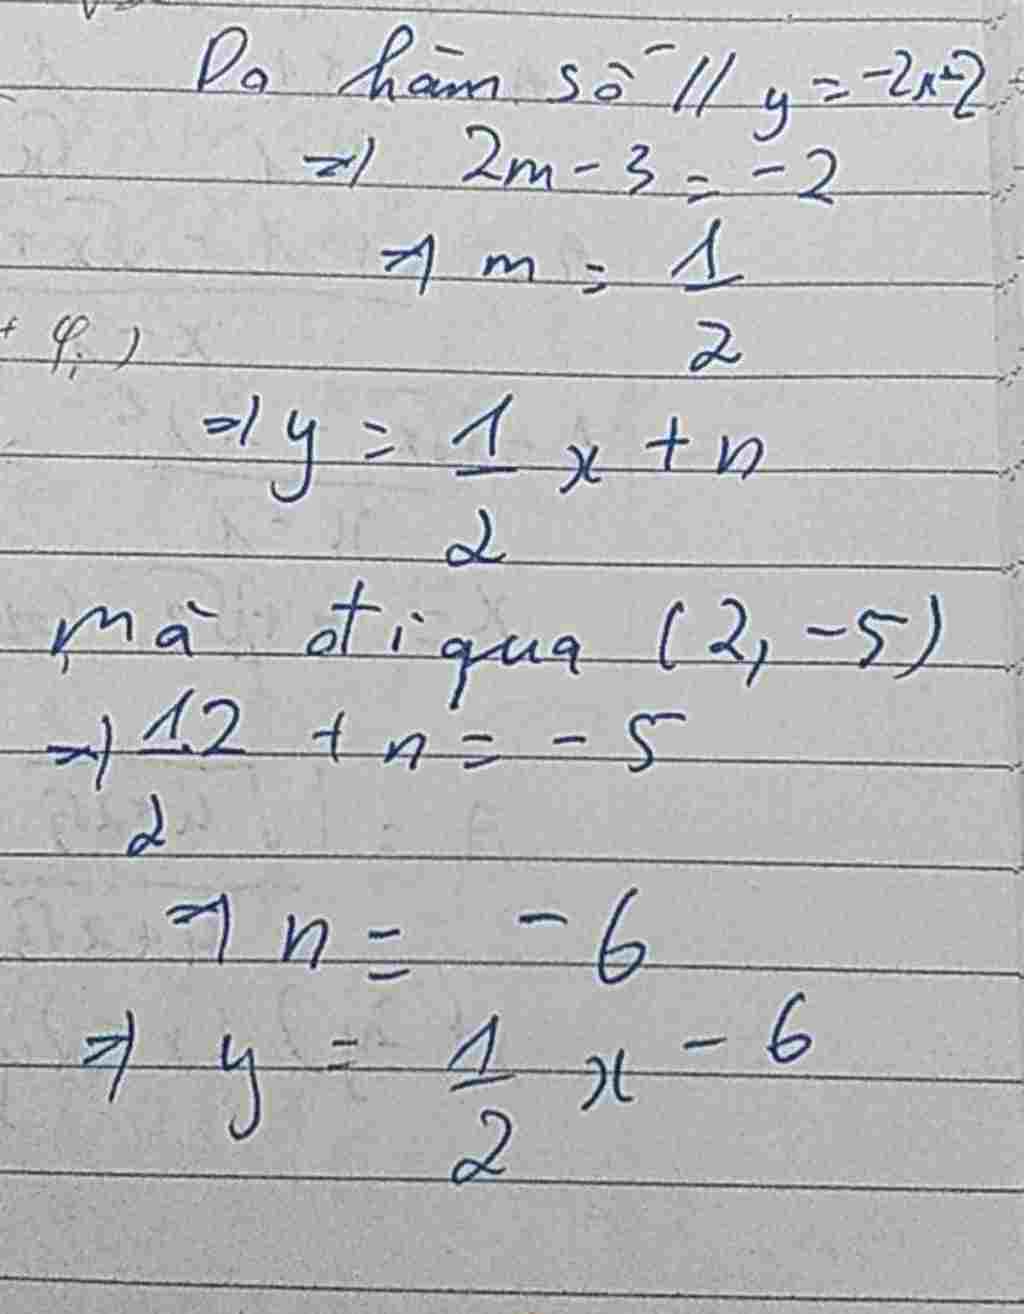 Do hàm số // y = -2x+2
=> 2m - 3 = -2
=> m = 1/2
=> y = 1/2 x + n
mà đi qua (2, -5)
=> 1.2/2 + n = -5
=> n = -6
=> y = 1/2 x - 6